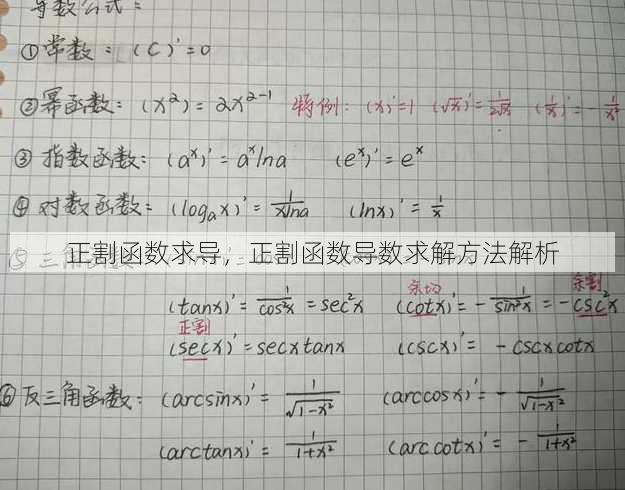 导数公式：
①常数：(C)'=0
②幂函数：(x²)=2x²⁻¹ 特例：(x)'=1 (√x)'=1/2√x (1/x)'=-1/x²
③指数函数：(aˣ)'=aˣlna (eˣ)'=eˣ
④对数函数：(logₐx)'=1/xlna (lnx)'=1/x
正割函数求导，正割函数导数求解方法解析
⑤三角函数
余切 余割
(tanx)'=1/cos²x=sec²x (cotx)'=-1/sin²x=-csc²x
正割
(secx)'=secxtanx (cscx)'=-cscxcotx
⑥反三角函数：(arcsinx)'=1/√1-x² (arccosx)'=-1/√1-x²
(arctanx)'=1/1+x² (arccotx)'=-1/1+x²